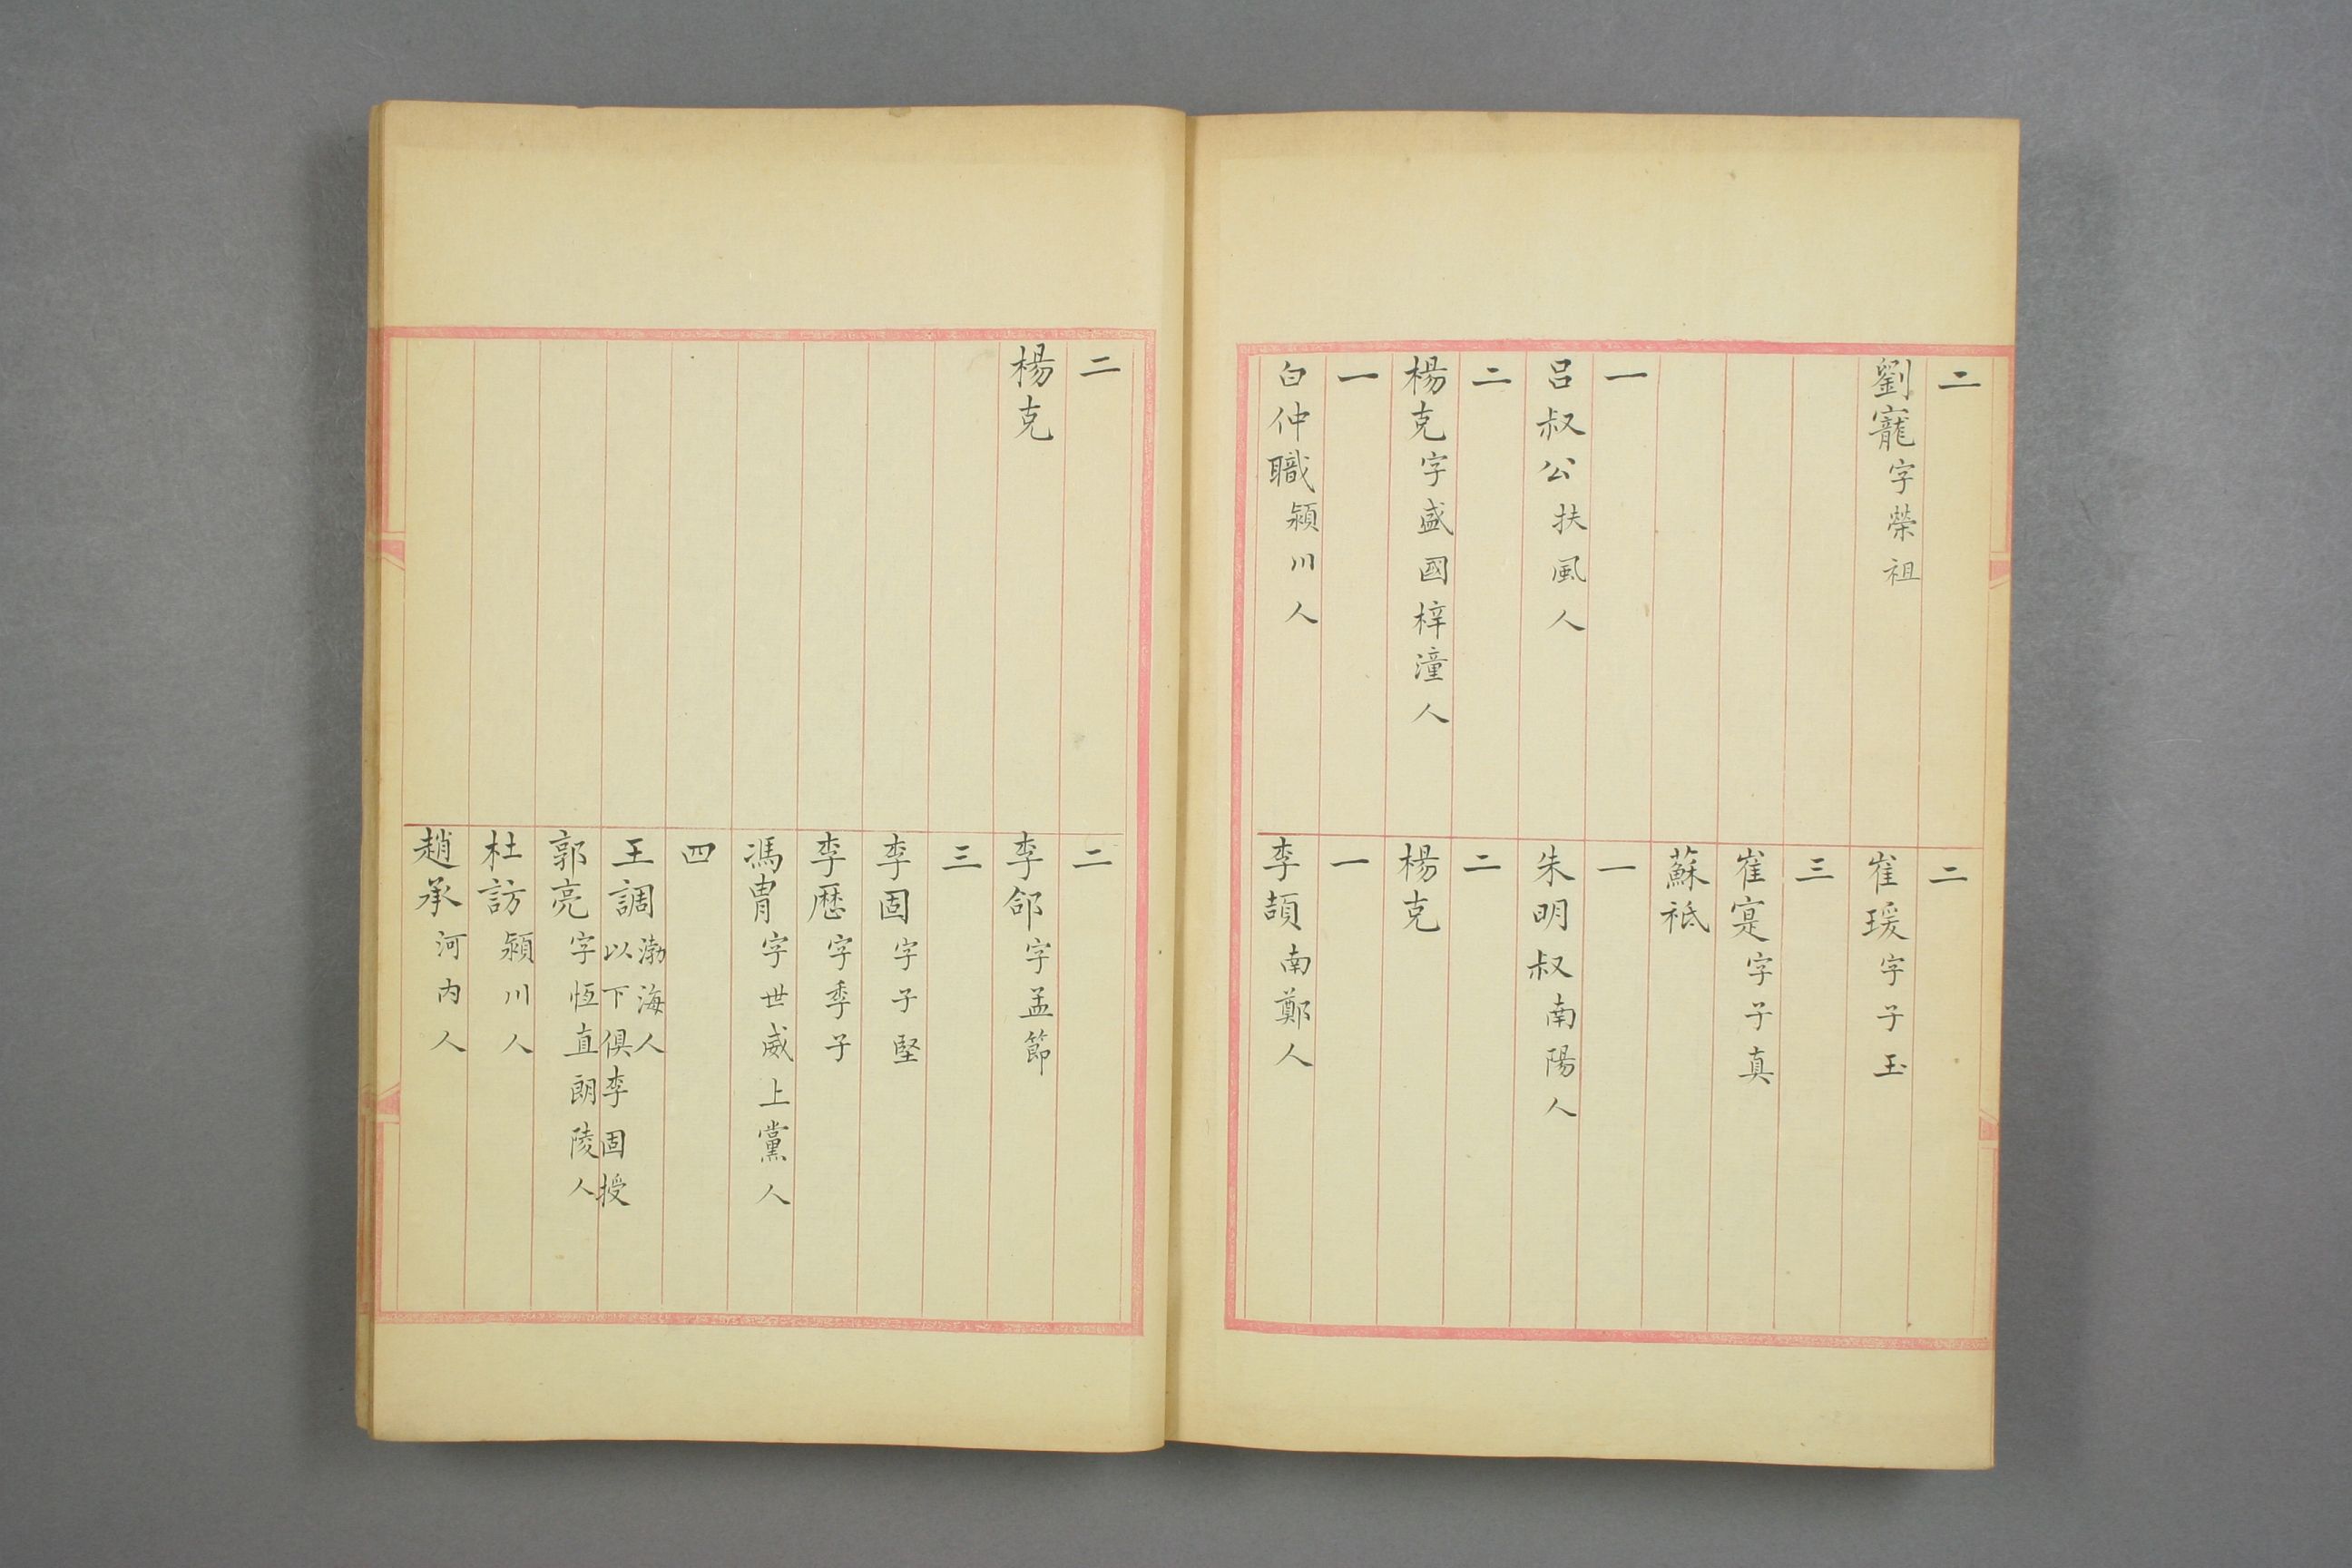 二
劉寵字榮祖
一
呂叔公扶風人
二
楊充字盛國梓潼人
一
白仲職潁川人
二
崔瑗字子玉
三
崔寔字子真
蘇祗
一
朱明叔南陽人
二
楊充
一
李頡南鄭人
二
楊充
二
李郃字孟節
三
李固字子堅
李歷字季子
馮胄字世威上黨人
四
王調渤海人
以下俱李固授
郭亮字恆直朗陵人
杜訪潁川人
趙承河內人